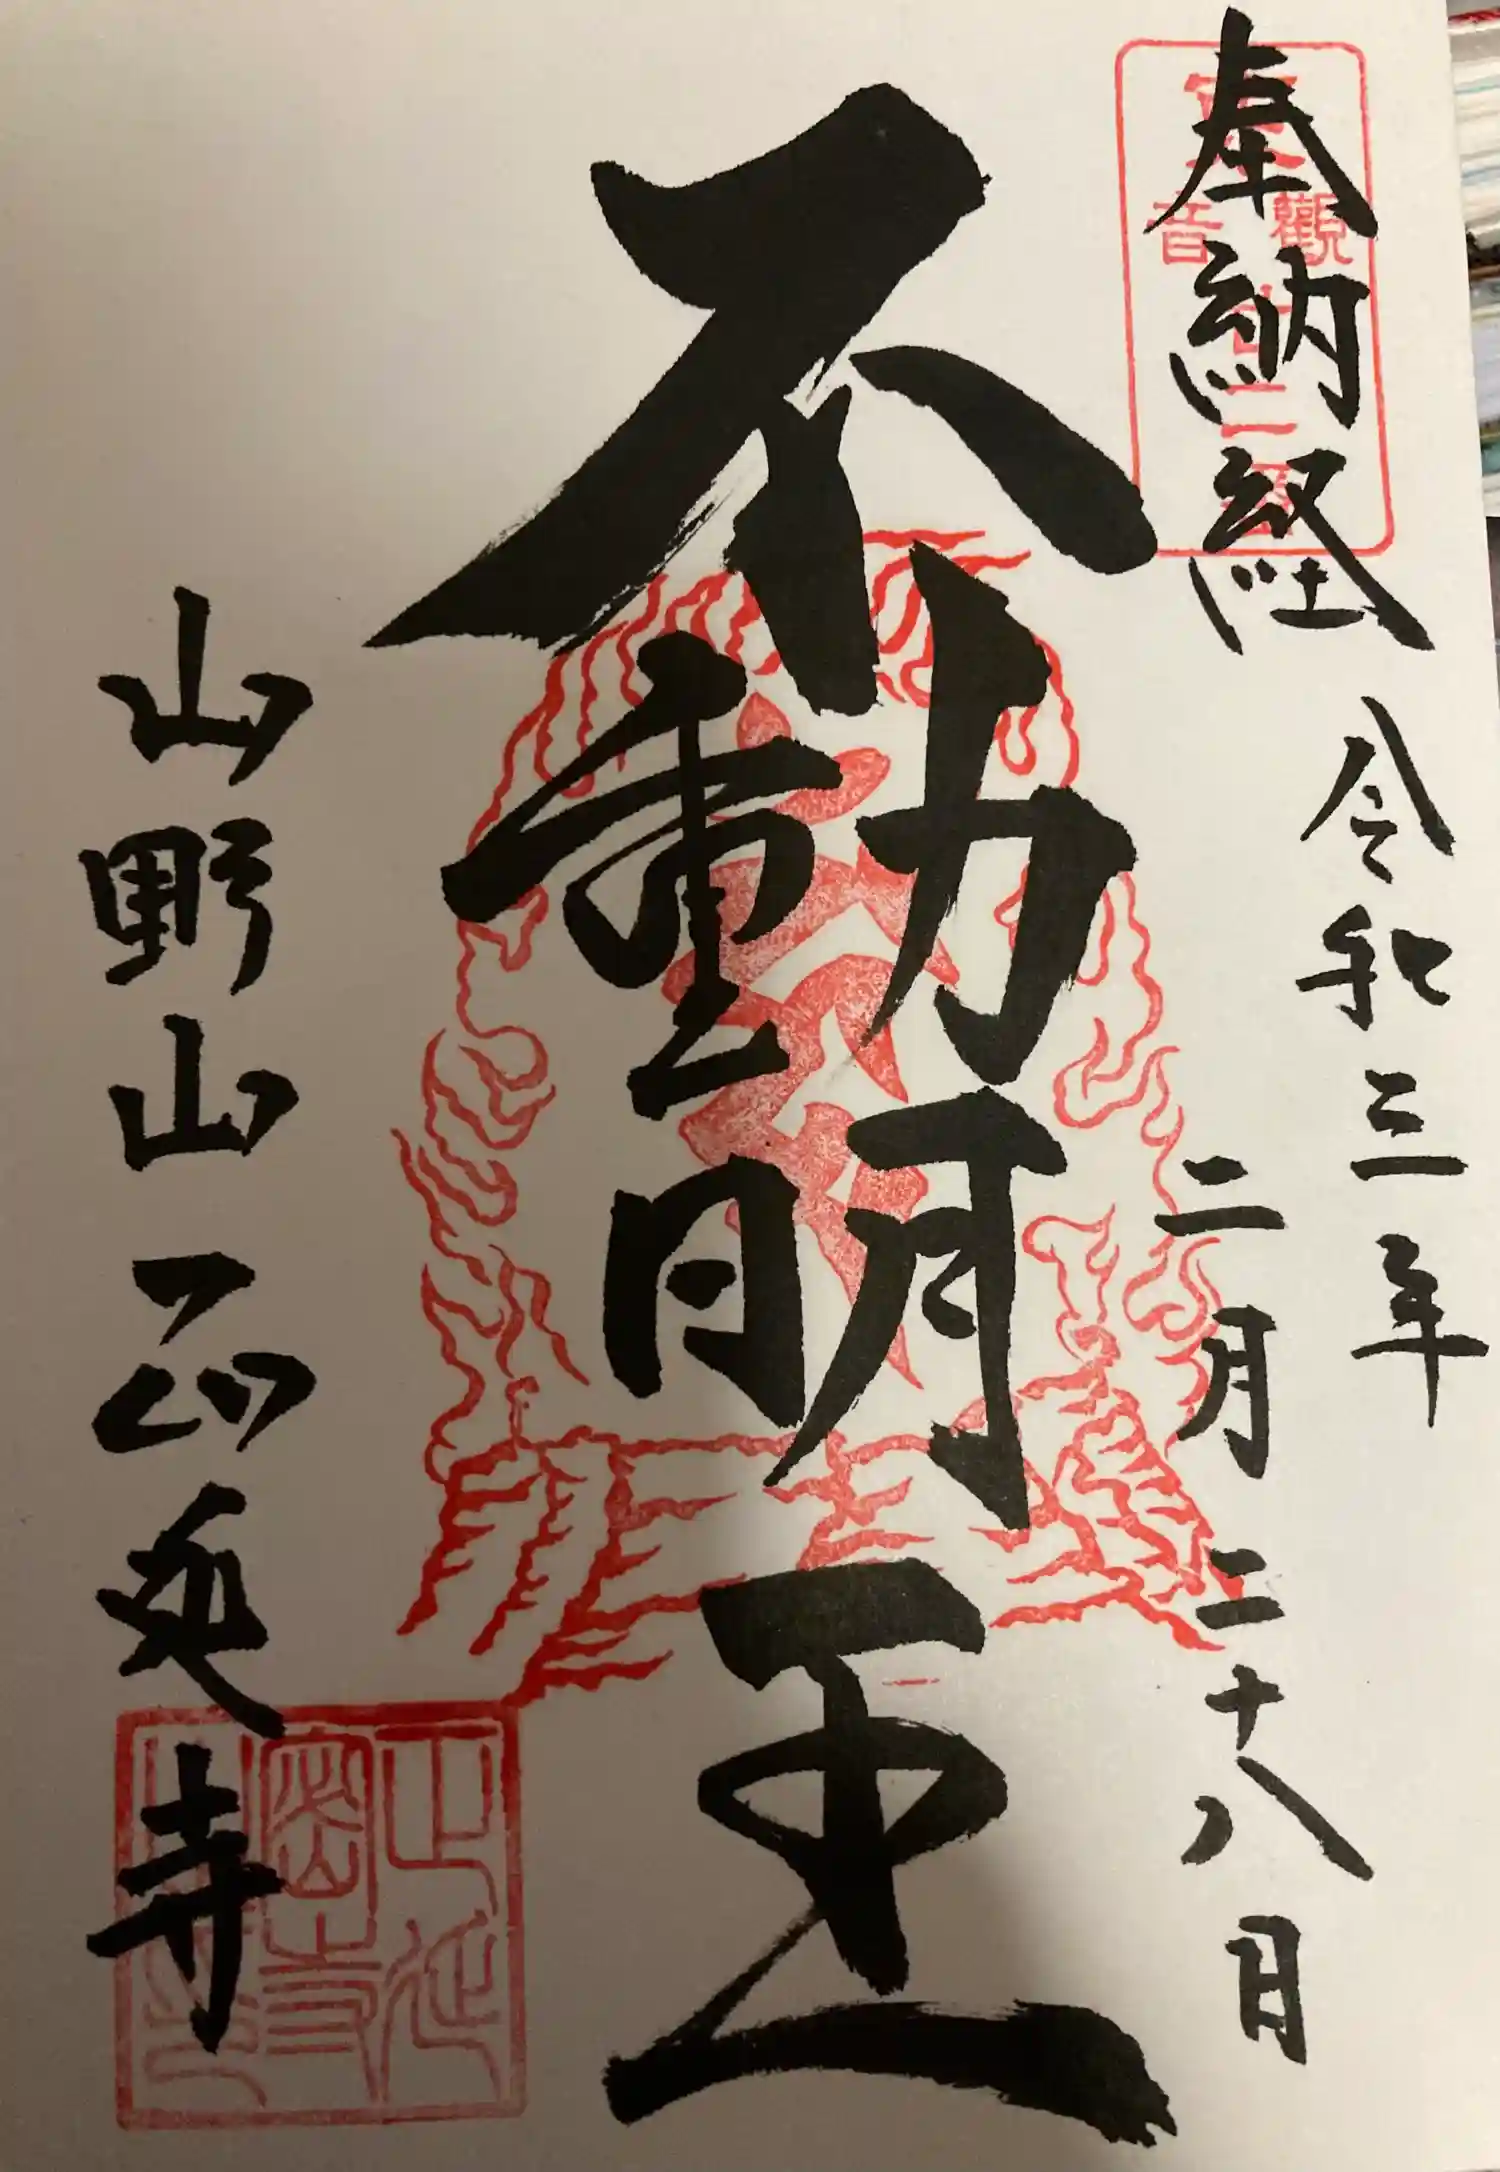 奉納経
令和三年
二月二十八日
不動明王
山野山正延寺
觀音